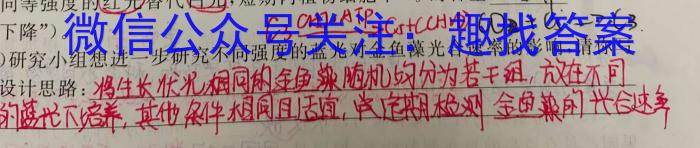 同等强度的红光替代白光,短期内植物细胞中
下降”)
微信公众号关注:趣找答案
)研究小组想进一步研究不同强度的蓝光对金鱼藻光合速率的影响,请
设计思路:将生长状况相同的金鱼藻随机均分为若干组,放在不同
的蓝光下培养,其他条件相同且适宜,定期检测 金鱼藻的光合速率